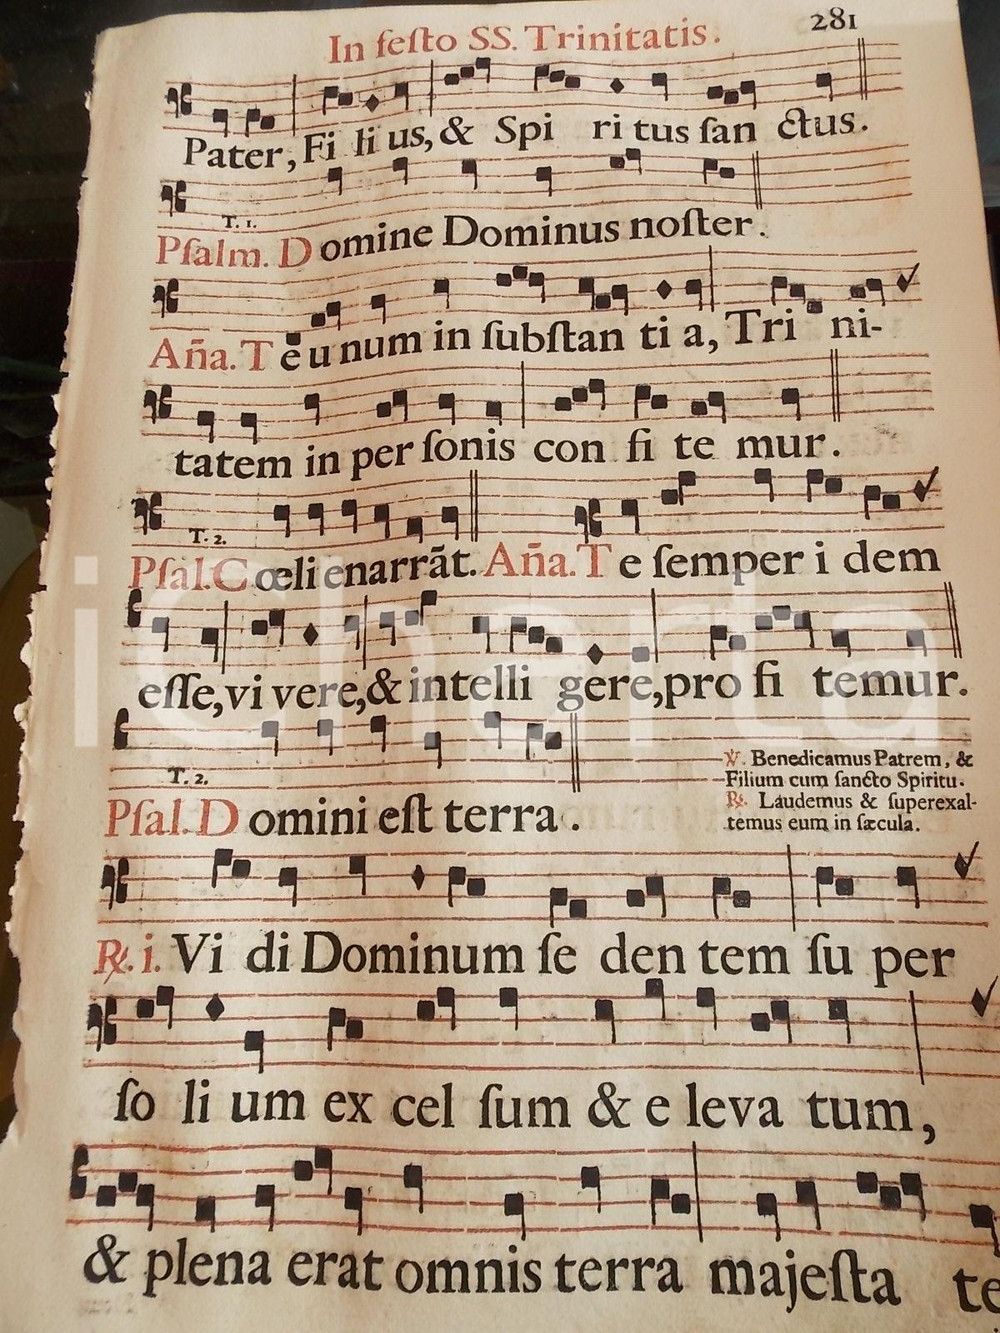 In feſto SS. Trinitatis. 281
Pater, Fi li us, & Spi ri tus ſan ctus.
T. 1.
Pſalm. Domine Dominus noſter.
Aña. Te u num in ſubſtan ti a, Tri ni-
tatem in per ſonis con fi te mur.
T. 2.
Pſal. Cœli enarrãt. Aña. Te ſemper i dem
eſſe, vi vere, & intelli gere, pro fi temur.
T. 2.
Pſal. Domini eſt terra.
℣. Benedicamus Patrem, &
Filium cum ſancto Spiritu.
℟. Laudemus & ſuperexal-
temus eum in ſæcula.
℟. i. Vi di Dominum ſe den tem ſu per
ſo li um ex cel ſum & e leva tum,
& plena erat omnis terra majeſta te
iCharta